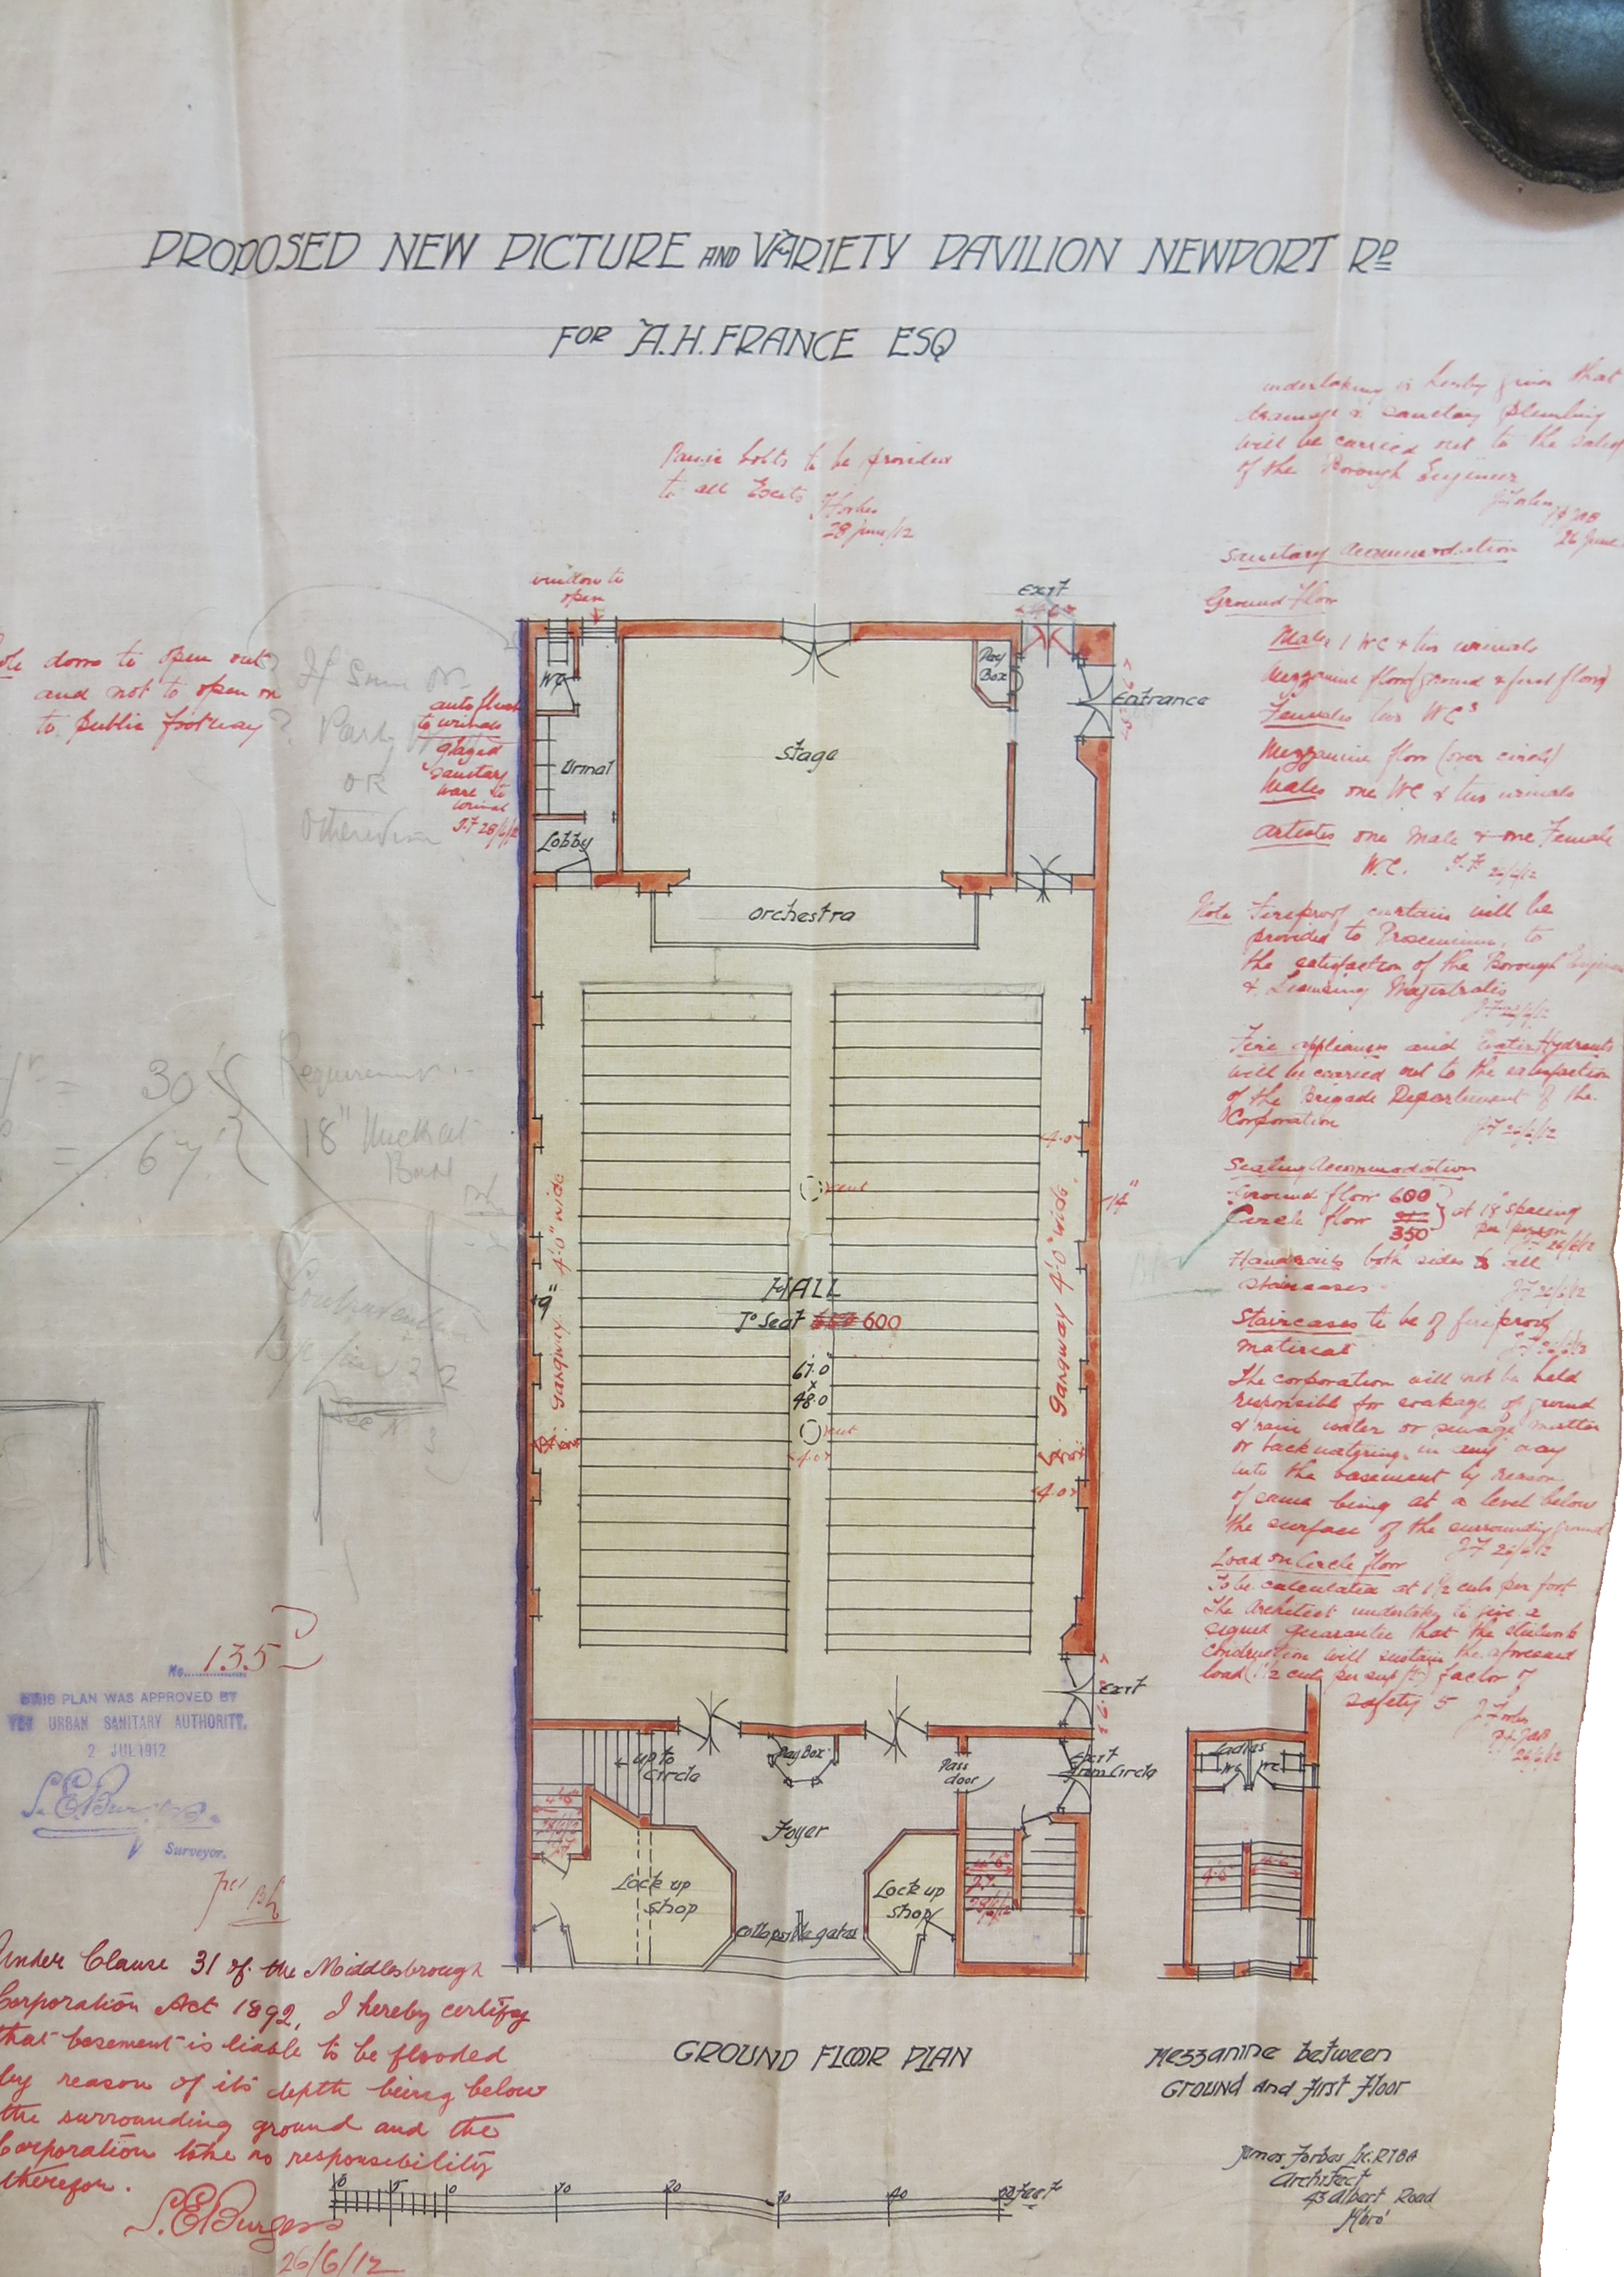 PROPOSED NEW PICTURE AND VARIETY PAVILION NEWPORT RD
FOR A.H. FRANCE ESQ
Panic bolts to be provided
to all Exits J Forbes
28 June/12
undertaking is hereby given that
drainage & sanitary plumbing
will be carried out to the
of the Borough Engineer
J. Forbes
26 June
Sanitary Accommodation
Ground floor
Males 1 WC & two urinals
Mezzanine floor (ground & first floor)
Females two WCs
Mezzanine floor (over circle)
Males one WC & two urinals
Artistes one Male & one Female
W.C. J.F. 26/6/12
Note Fireproof curtain will be
provided to Proscenium, to
the satisfaction of the Borough
& Licensing Magistrates
J.F 26/6/12
Fire appliances and Water Hydrants
will be carried out to the satisfaction
of the Brigade Department of the
Corporation J.F 26/6/12
Seating Accommodation
Ground floor 600
Circle floor 350
at 18" spacing
per person
26/6/12
Handrails both sides to all
staircases J.F 26/6/12
Staircases to be of fireproof
material
The corporation will not be held
responsible for soakage of ground
& rain water or sewage matter
or backwatering in any way
into the basement by reason
of same being at a level below
the surface of the surrounding ground
J.F 26/6/12
Load on Circle floor
To be calculated at 1½ cwts per foot
The Architect undertakes to give a
signed guarantee that the
construction will sustain the aforesaid
load (1½ cwts per sup ft) factor of
safety 5 J. Forbes
26/6/12
doors to open out
and not to open on
to public footway
If
Party
OR
Otherwise
window to
open
auto flush
to urinals
glazed
sanitary
ware to
urinal
J.F 28/6/12
Exit
4.6
WC
Pay
Box
Entrance
Stage
Urinal
Lobby
Orchestra
= 30'
= 67'
Requirement
18" thick at
Base
4.0
vent
Gangway 4'.0" wide
Gangway 4'.0" wide
14"
9"
HALL
To Seat 600
67.0
x
48.0
vent
4.0
4.0
Exit
up to
Circle
Pay Box
Pass
door
Exit
from Circle
Foyer
4'.6"
28/6/12
Lock up
shop
Lock up
shop
4'.6"
28/6/12
collapsible gates
Ladies
WC WC
4'.6 4'.6
No. 135
THIS PLAN WAS APPROVED BY
THE URBAN SANITARY AUTHORITY.
2 JUL 1912
S.E. Burgess
Surveyor.
Under Clause 31 of the Middlesbrough
Corporation Act 1892, I hereby certify
that basement is liable to be flooded
by reason of its depth being below
the surrounding ground and the
Corporation take no responsibility
therefor.
S.E Burgess
26/6/12
GROUND FLOOR PLAN
Mezzanine between
Ground and First Floor
10 5 0 10 20 30 40 50 Feet
James Forbes Lic. RIBA
Architect
43 Albert Road
M'bro'